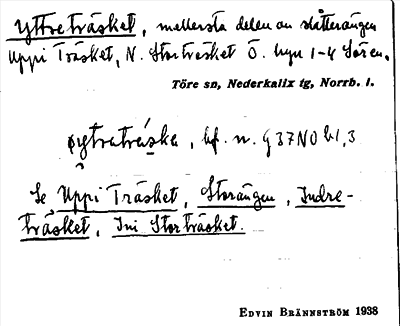 Yttreträsket, mellersta delen av slåtterängen
Uppi Träsket, N. Storträsket Ö. hyn 1-4 Sören.
Töre sn, Nederkalix tg, Norrb. l.
ytrəträskə, bf. n. g 37 NO b1,3
Se Uppi Träsket, Storängen, Indre-
träsket, Ini Storträsket.
EDVIN BRÄNNSTRÖM 1938